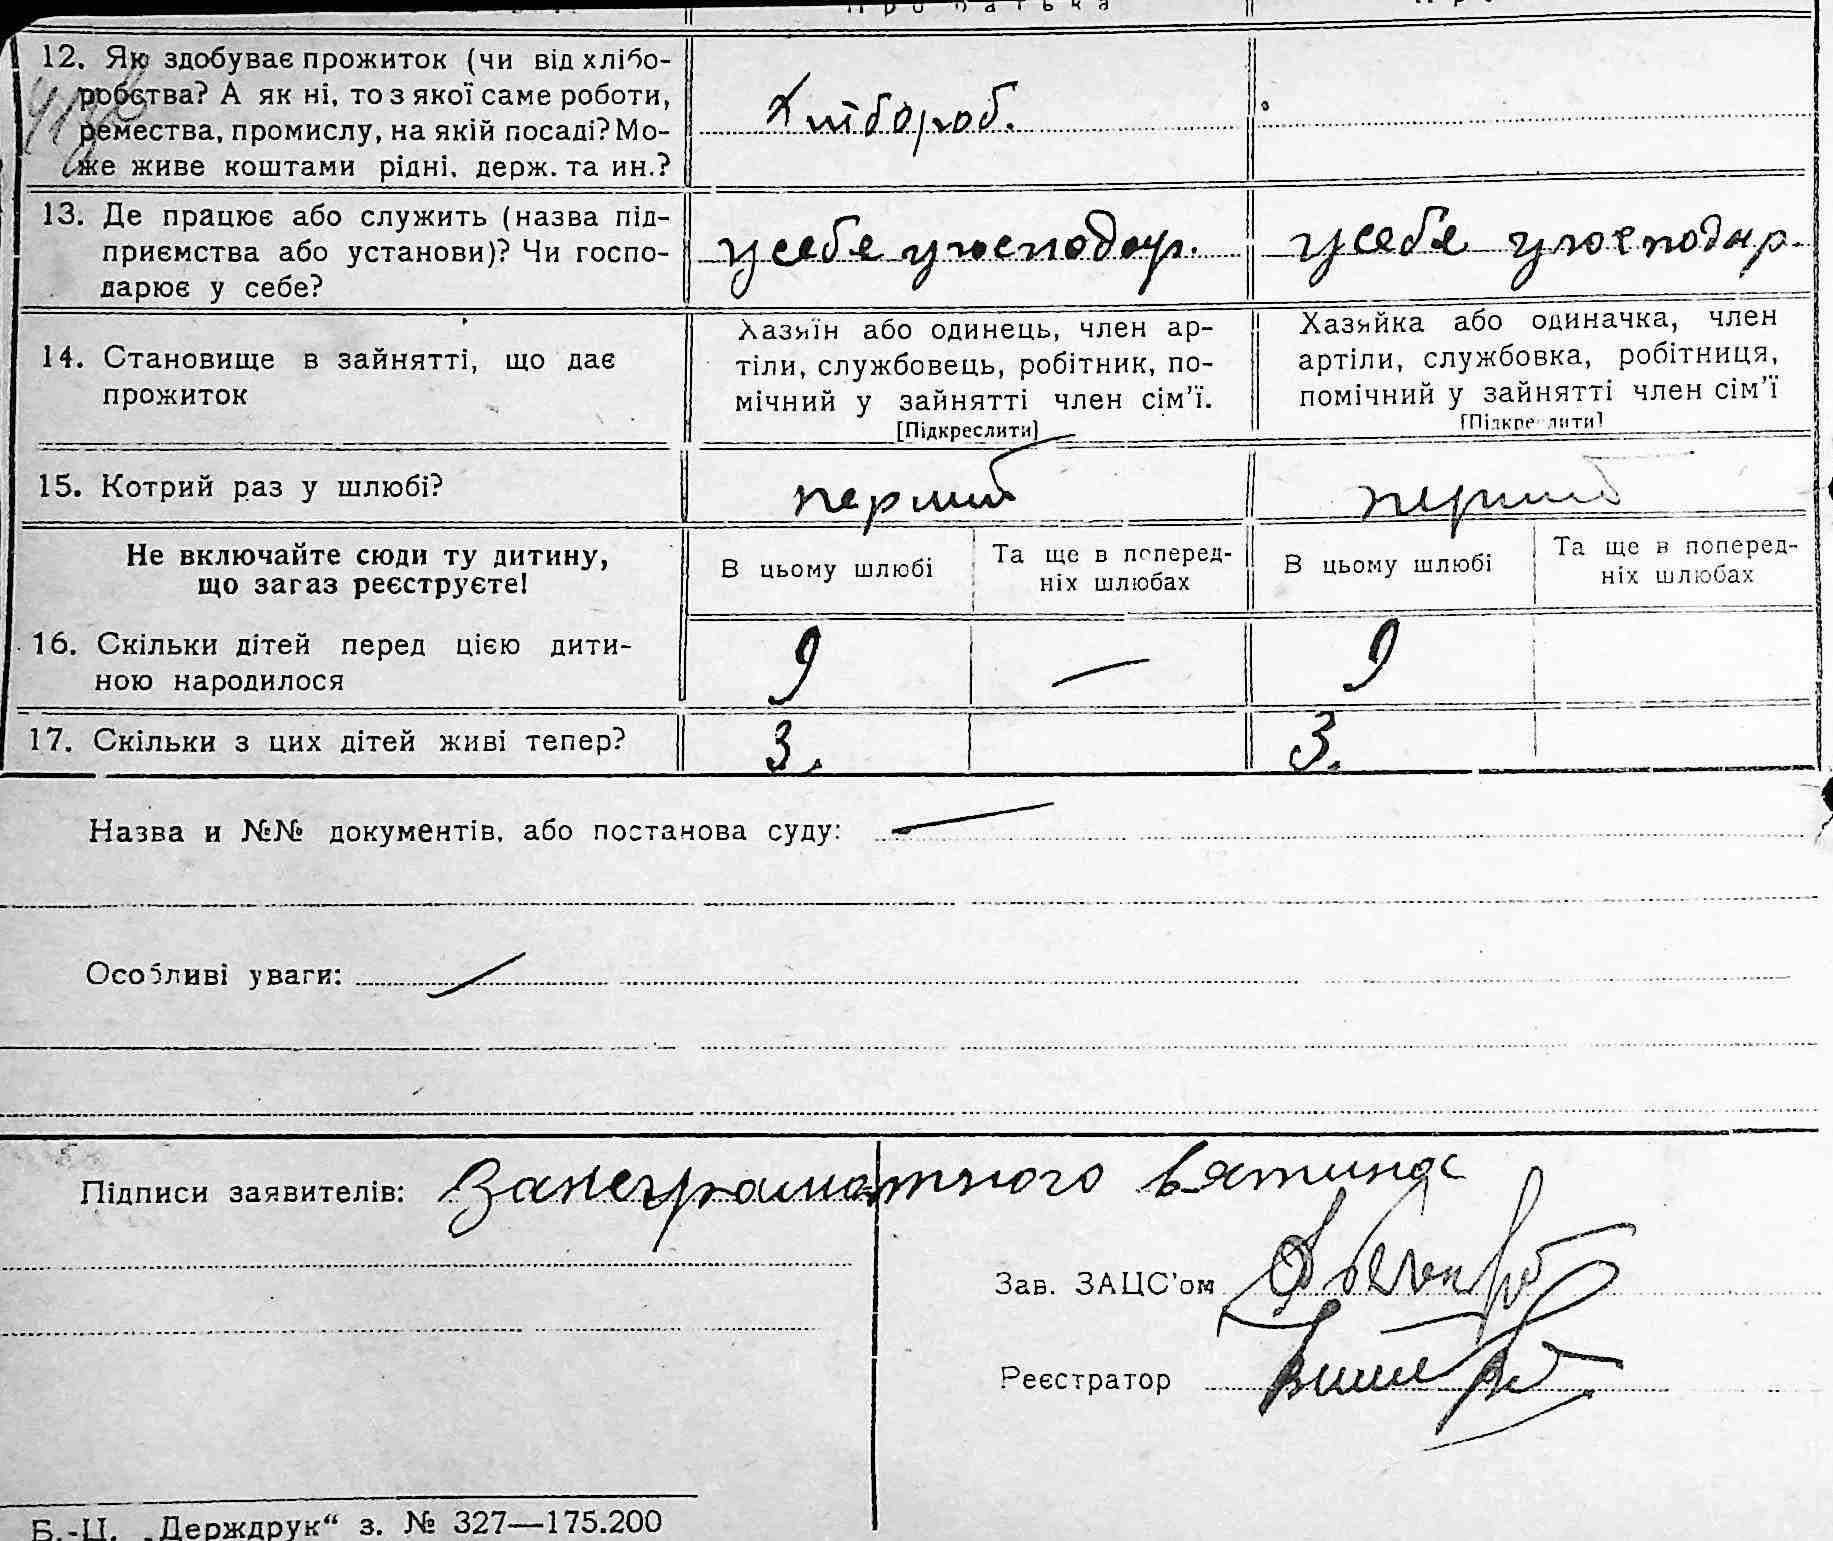 Про батька
12. Як здобуває прожиток (чи від хлібо-
робства? А як ні, то з якої саме роботи,
ремества, промислу, на якій посаді? Мо-
же живе коштами рідні, держ. та ин.?
Хлібороб.
13. Де працює або служить (назва під-
приємства або установи)? Чи госпо-
дарює у себе?
у себе у господар.
у себе у господар.
14. Становище в зайнятті, що дає
прожиток
Хазяїн або одинець, член ар-
тіли, службовець, робітник, по-
мічний у зайнятті член сім'ї.
[Підкреслити]
Хазяйка або одиначка, член
артіли, службовка, робітниця,
помічний у зайнятті член сім'ї
[Підкреслити]
15. Котрий раз у шлюбі?
перший
перший
Не включайте сюди ту дитину,
що загаз реєструєте!
В цьому шлюбі
Та ще в поперед-
ніх шлюбах
В цьому шлюбі
Та ще в поперед-
ніх шлюбах
16. Скільки дітей перед цією дити-
ною народилося
9
—
9
17. Скільки з цих дітей живі тепер?
3.
3.
Назва и №№ документів, або постанова суду: —
Особливі уваги: —
Підписи заявителів: За неграмотного
Зав. ЗАЦС'ом
Реєстратор
Б.-Ц. „Держдрук“ з. № 327—175.200